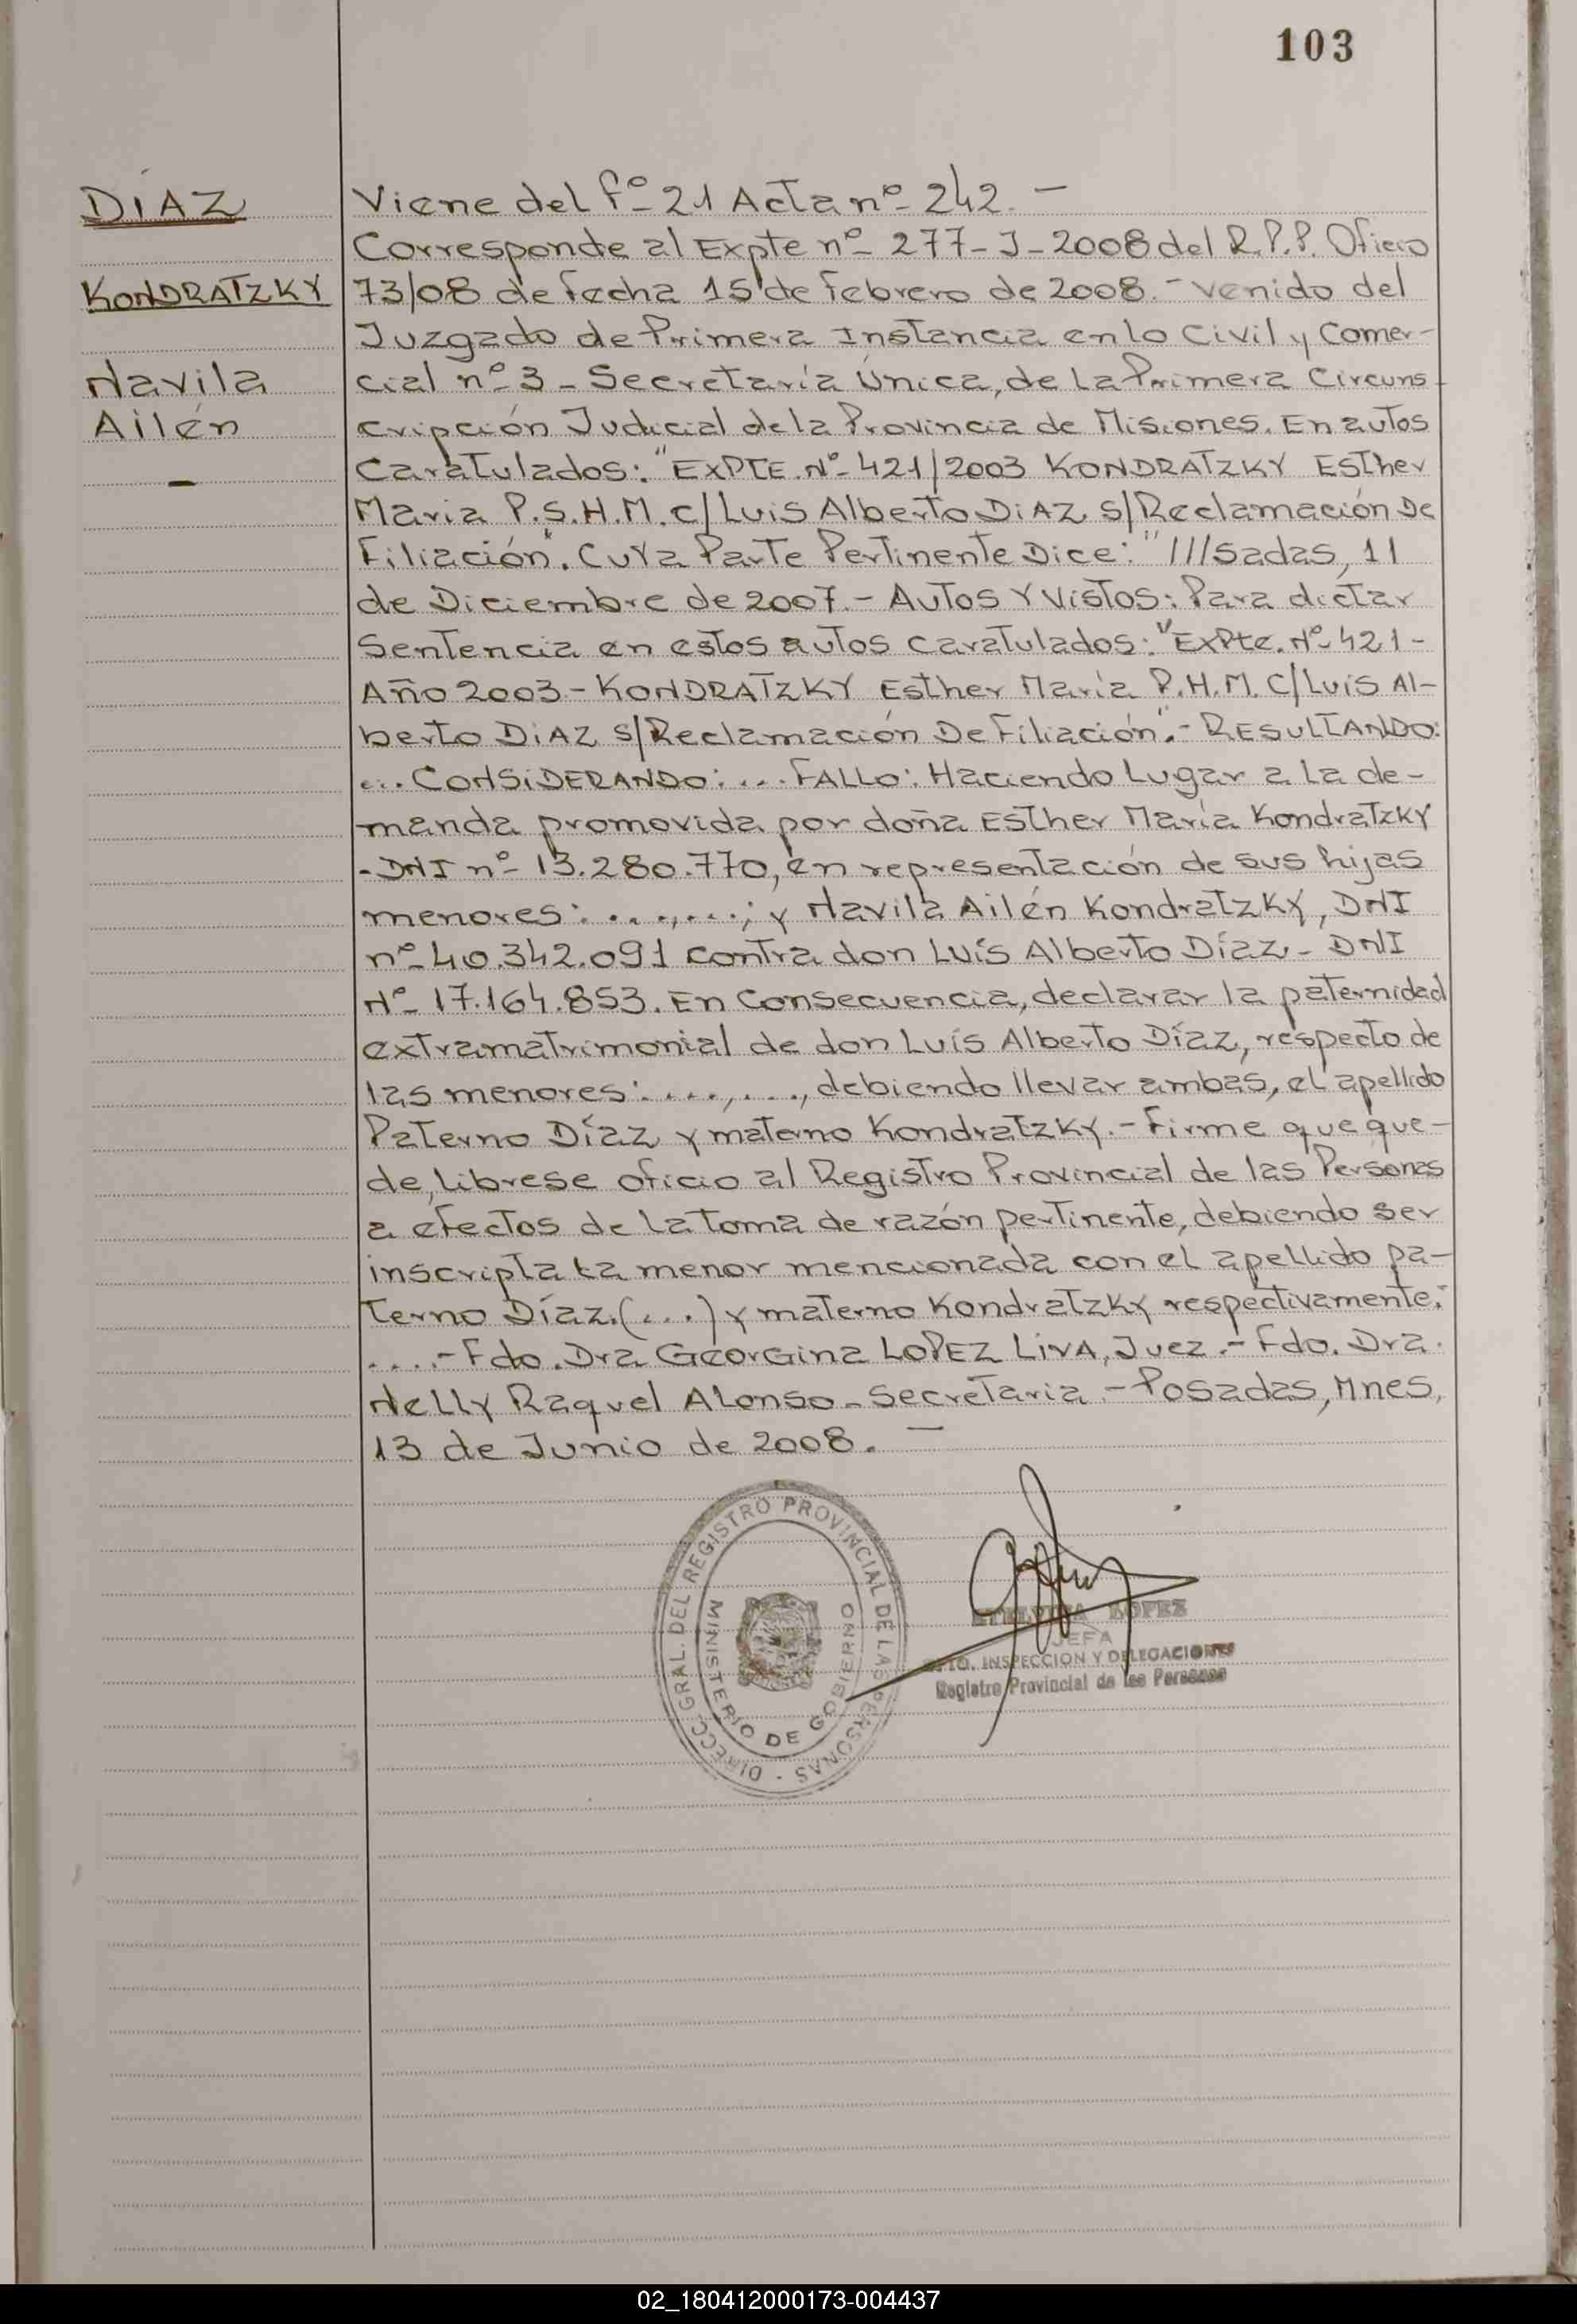 103
DíAZ
KONDRATZKY
Navila
Ailén
-
Viene del fº- 21 Acta nº- 242. -
Corresponde al Expte nº- 277-J-2008 del R.P.P. Oficio
73/08 de fecha 15 de febrero de 2008.- venido del
Juzgado de Primera Instancia en lo Civil y Comer-
cial nº-3 - Secretaría Única, de La Primera Circuns-
cripción Judicial de la Provincia de Misiones. En autos
Caratulados: "EXPTE. Nº- 421/2003 KONDRATZKY Esther
Maria P.S.H.M. c/ Luis Alberto DiAZ s/ Reclamación De
Filiación". Cuya Parte Pertinente Dice: "///sadas, 11
de Diciembre de 2007.- Autos Y Vistos: Para dictar
Sentencia en estos autos caratulados: "Expte. Nº- 421-
Año 2003- KONDRATZKY Esther María P.H.M. C/ Luis Al-
berto DiAZ s/ Reclamación De Filiación".- RESULTANDO:
... CONSiDERANDO: ... FALLO: Haciendo Lugar a la de-
manda promovida por doña Esther María Kondratzky
-DNI nº- 13.280.770, en representación de sus hijas
menores: ...,...; y Navila Ailén Kondratzky, DNI
nº- 40.342.091 contra don Luís Alberto Díaz - DNI
Nº- 17.164.853. En Consecuencia, declarar la paternidad
extramatrimonial de don Luís Alberto Díaz, respecto de
las menores: ....,..., debiendo llevar ambas, el apellido
Paterno Díaz y materno Kondratzky.- Firme que que-
de, Librese oficio al Registro Provincial de las Personas
a efectos de La toma de razón pertinente, debiendo ser
inscripta la menor mencionada con el apellido pa-
terno Díaz (...) y materno Kondratzky respectivamente.-
....- Fdo. Dra Georgina LOPEZ LivA, Juez.- Fdo. Dra.
Nelly Raquel Alonso - Secretaria.- Posadas, Mnes,
13 de Junio de 2008. -
DIRECC. GRAL. DEL REGISTRO PROVINCIAL DE LAS PERSONAS -
MINISTERIO DE GOBIERNO
LOPEZ
JEFA
DPTO. INSPECCION Y DELEGACIONES
Registro Provincial de las Personas
02_180412000173-004437